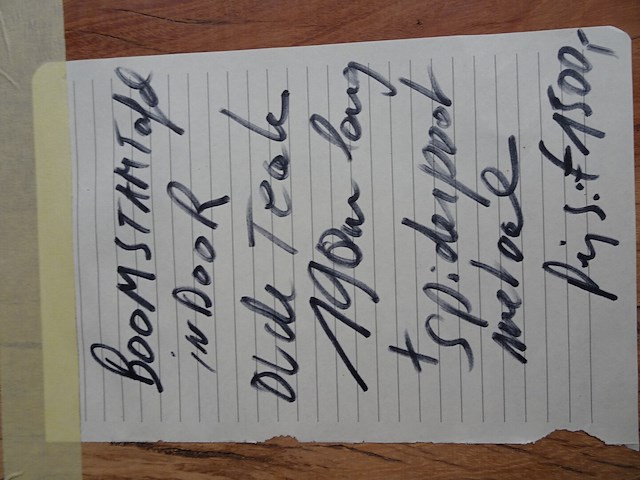 BOOMSTAMTafel
iNDooR
Teak
190cm long
+
Spiderpoot
metael
Prijs:f1500,-